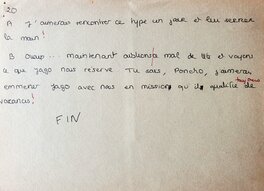 20
A J'aimerais rencontrer ce type un jour et lui serrer
la main!
B Ouais... maintenant oublions ça mal de tête et voyons
ce que Jago nous réserve Tu sais, Poncho, j'aimerai
toujours
emmener Jago avec nous en mission qu de
vacances!
FIN